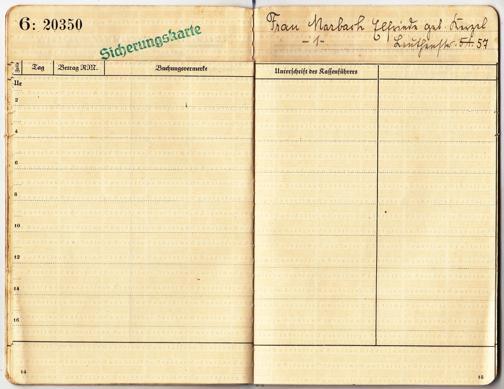 6: 20350
Sicherungskarte
Frau Marbach Elfriede geb.
-1-
Leuthenstr. 54 57
Tag Betrag RM. Buchungsvermerke Unterschrift des Kassenführers
2
4
6
8
10
12
14
16
14
15